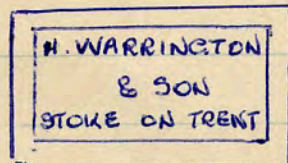 H. WARRINGTON
& SON
STOKE ON TRENT